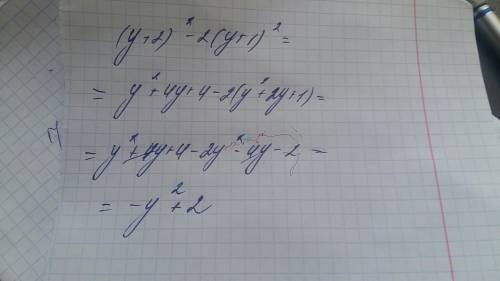 (y+2)² - 2(y+1)² =
= y² + 4y + 4 - 2(y² + 2y + 1) =
= y² + 4y + 4 - 2y² - 4y - 2 =
= -y² + 2